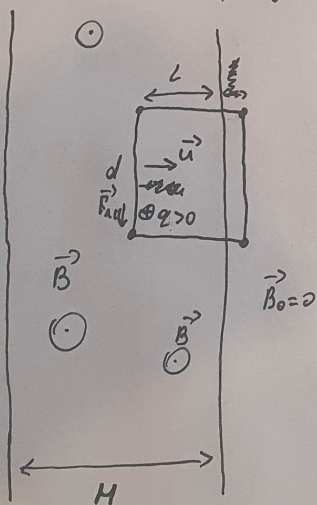 L
d
u
F
q>0
B
B
B₀=0
M